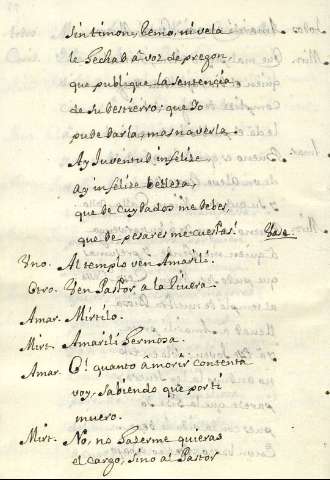 sin timon, Remo, ni vela
le hechad â voz de pregon
que publique la sentencia
de su destierro; que Yo
pude darla, mas no verla.
Ay Juventud infelize,
ay infelize belleza,
que de cuydados me debes,
que de pesares me cuestas. Vase
Vno. Al templo ven Amarili.
Otro. Ven Pastor a la rivera.
Amar. Mirtilo.
Mirt. Amarili hermosa.
Amar. O! quanto â morir contenta
voy, sabiendo que por ti
muero.
Mirt. No, no hazerme quieras
el cargo, sino al Pastor